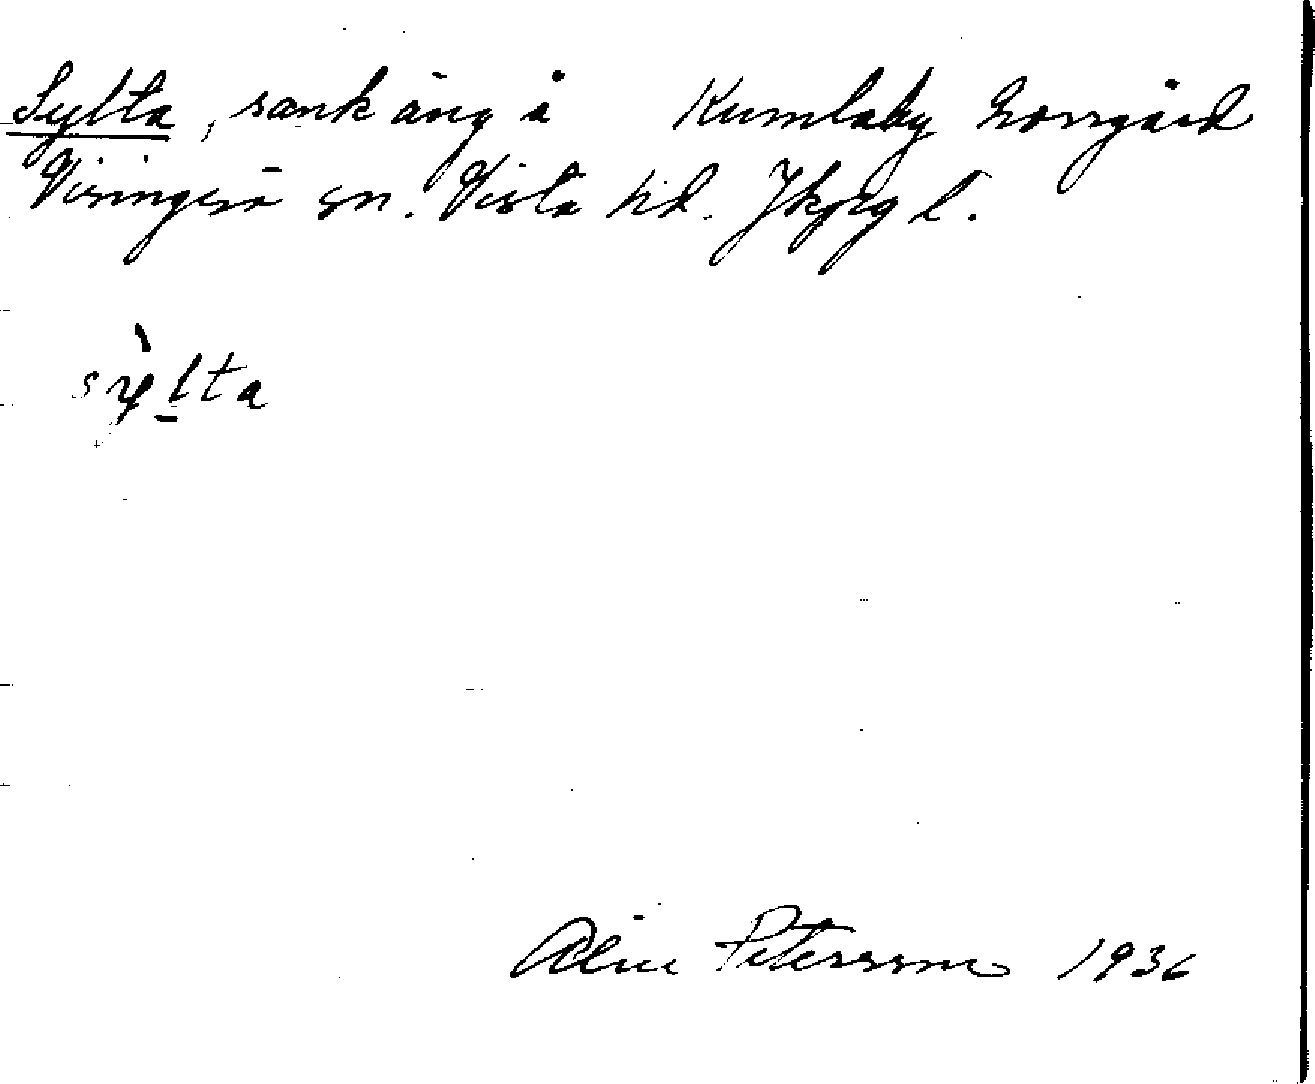 Sylta, sank äng å Kumlaby Norrgård
Visingsö sn. Vista hd. Jkpg l.
sỳlta
Petersson 1936